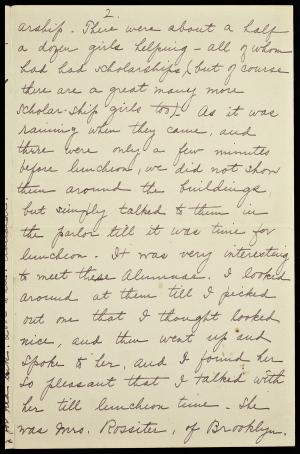 2.
arship. There were about a half
a dozen girls helping - all of whom
had had scholarships (but of course
there are a great many more
scholar-ship girls too). As it was
raining when they came, and
there were only a few minutes
before luncheon, we did not show
them around the buildings,
but simply talked to them in
the parlor till it was time for
luncheon. It was very interesting
to meet these Alumnae. I looked
around at them till I picked
out one that I thought looked
nice, and then went up and
spoke to her, and I found her
so pleasant that I talked with
her till luncheon time. She
was Mrs. Rossiter, of Brooklyn.